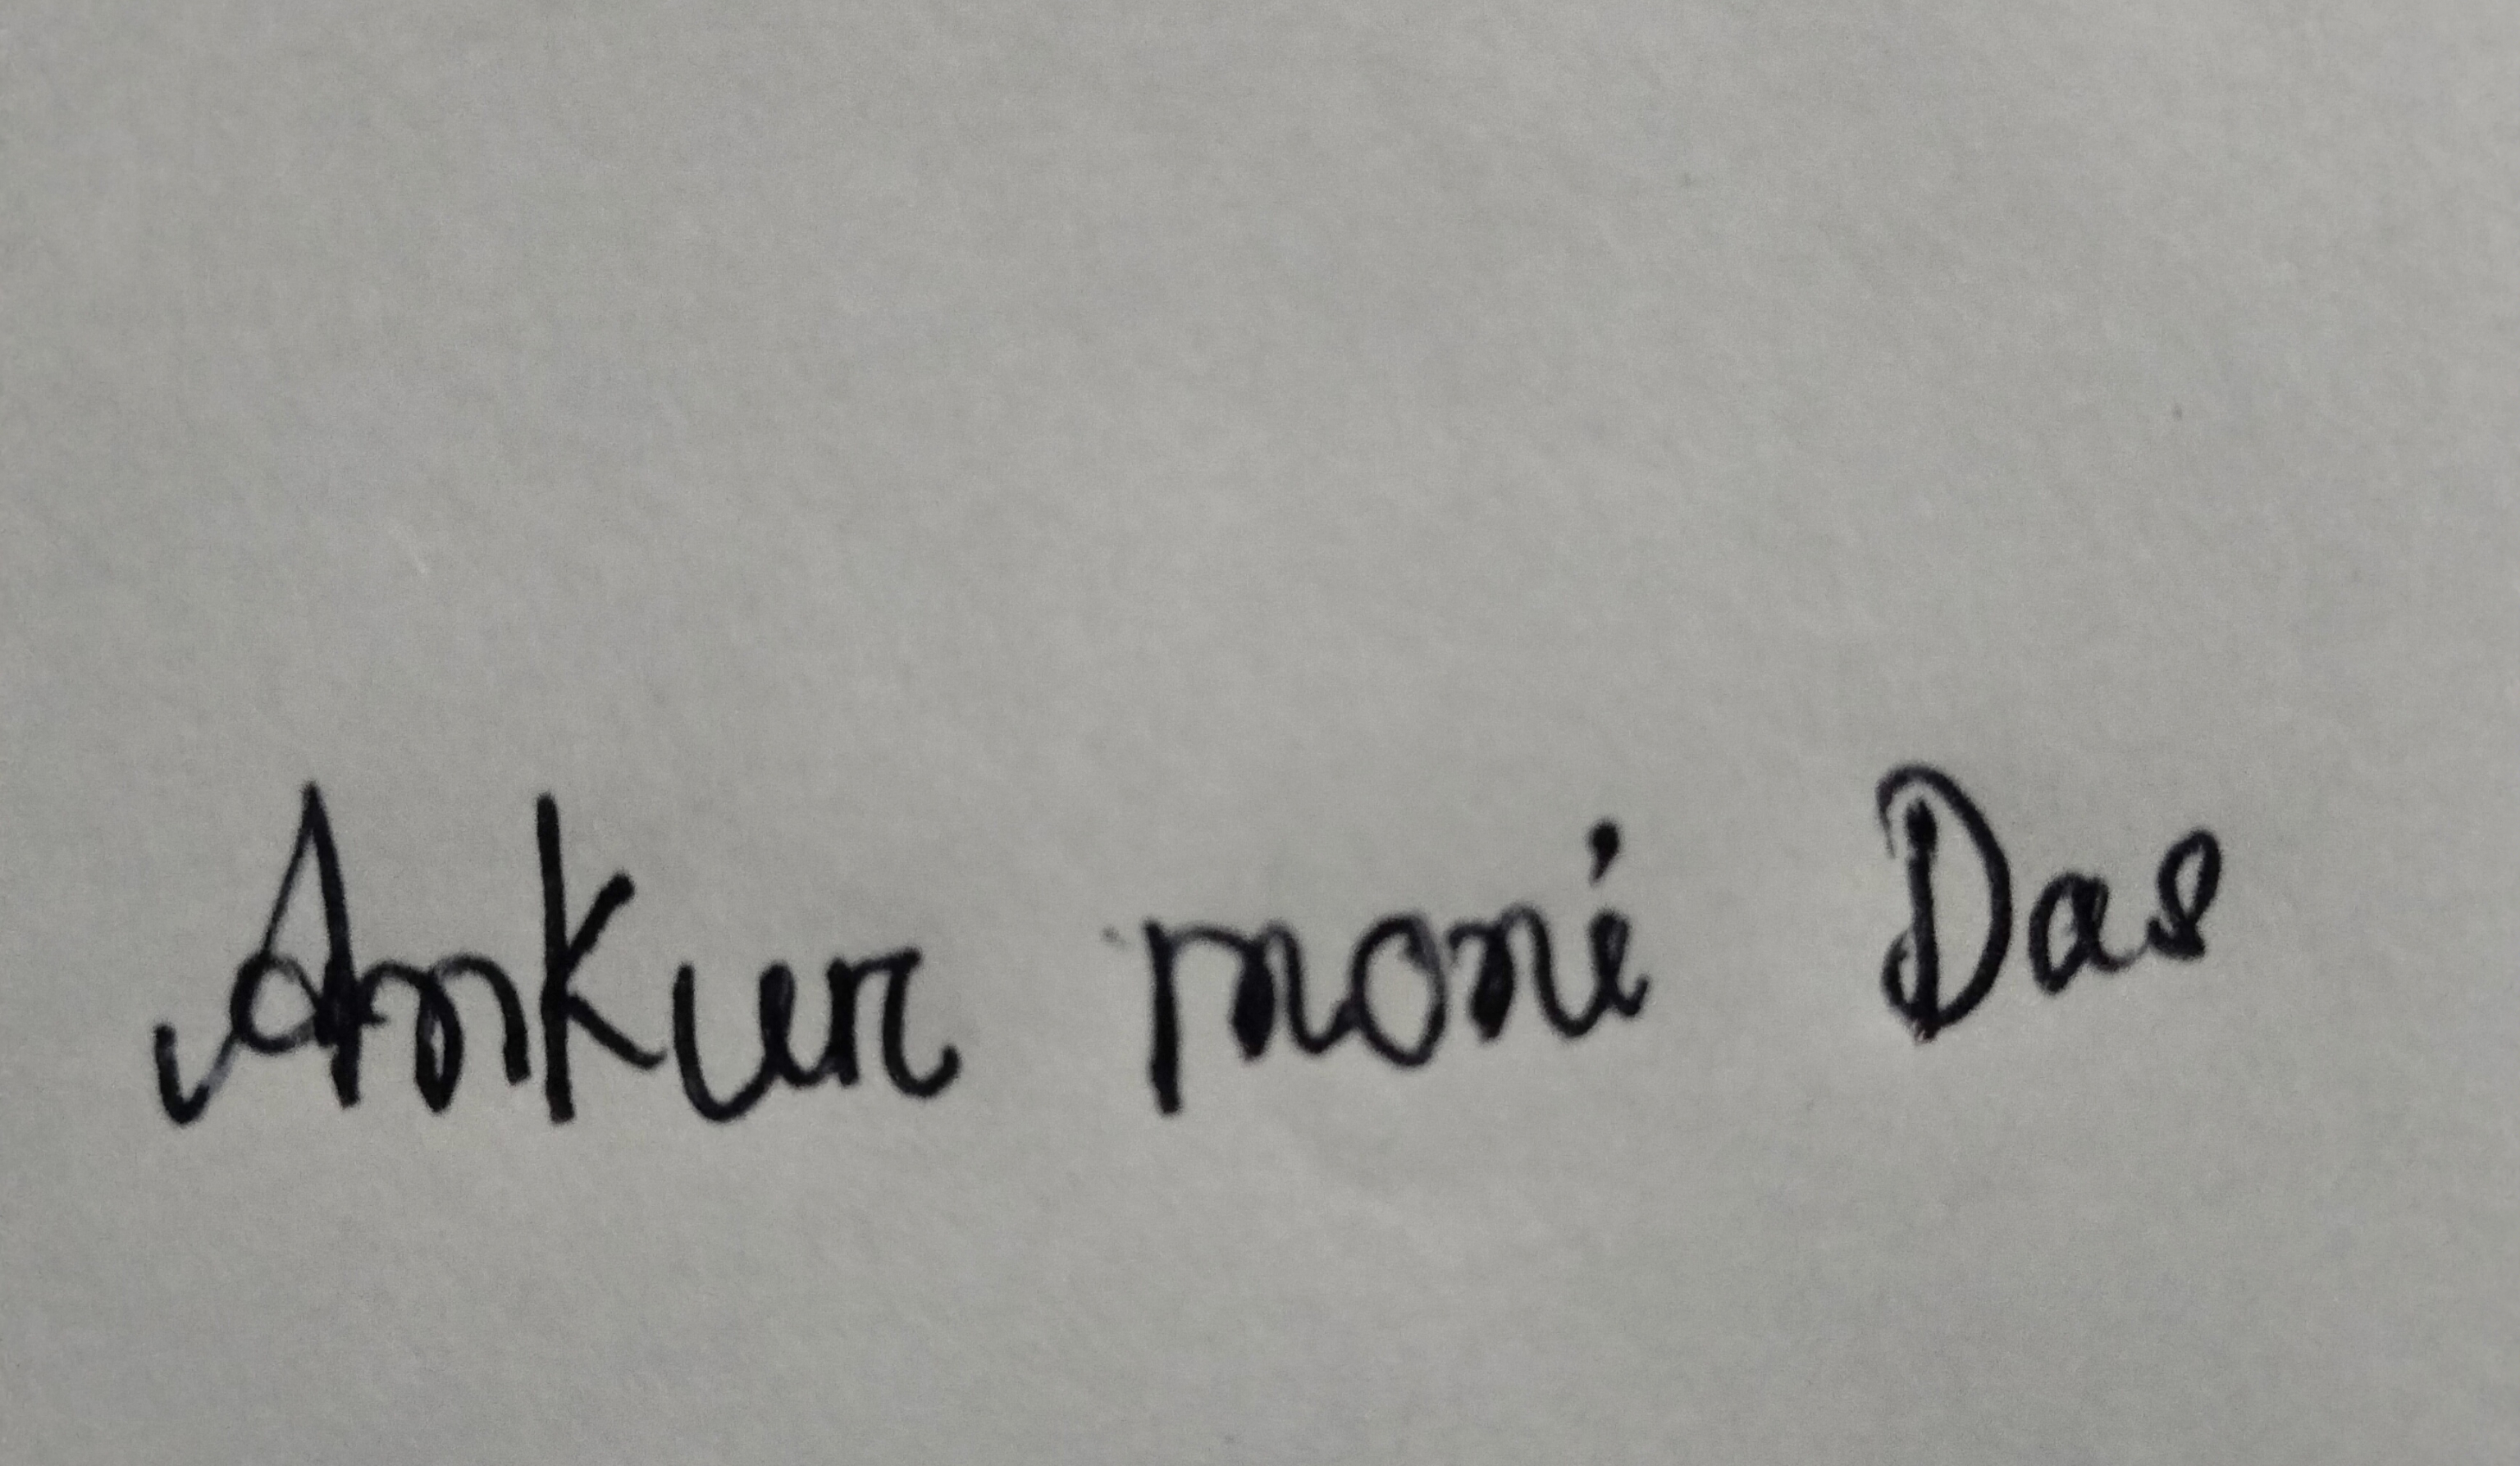 Ankur moni Das